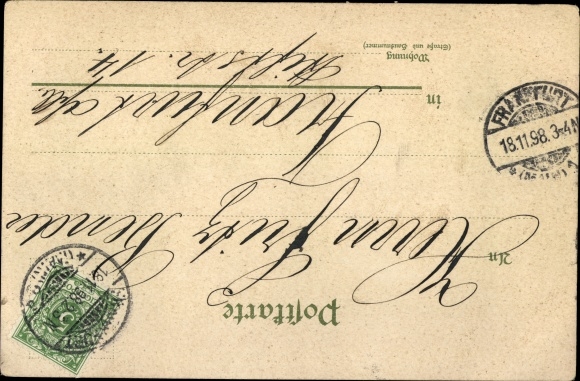 Postkarte
An
Herrn Fritz Bender
in
Frankfurt a/m
Wohnung
(Straße und Hausnummer)
14.
FRANKFURT
18.11.98. 3-4N
*(MAIN) 1
5